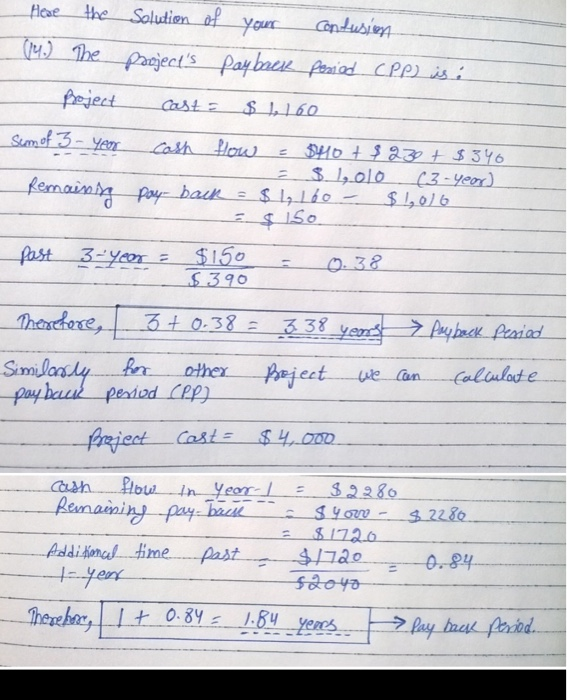 Here the Solution of your confusion
(14.) The project's Payback Period (PP) is :
Project cost = $ 1,160
Sum of 3-year cash flow = $440 + $230 + $340
= $ 1,010 (3-year)
Remaining pay-back = $1,160 - $1,010
= $150
Past 3-year = $150 / $390 = 0.38
Therefore, 3 + 0.38 = 3.38 years → Payback Period
Similarly for other Project we can calculate
payback period (PP)
Project Cost = $4,000
Cash flow in year-1 = $2280
Remaining pay-back = $4000 - $2280
= $1720
Additional time past = $1720 / $2040 = 0.84
1-year
Therefore, 1 + 0.84 = 1.84 years → Pay back Period.